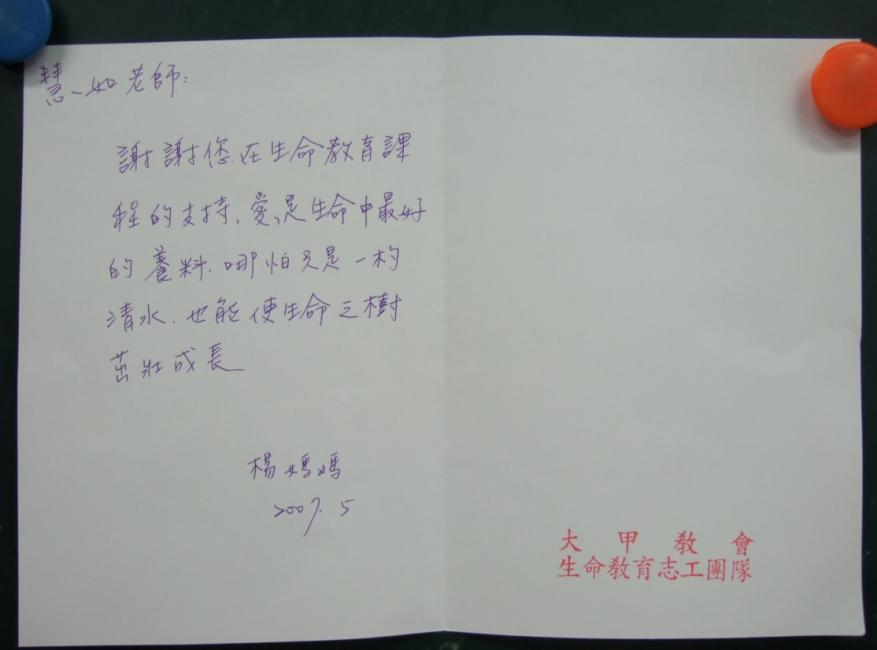 慧如老師:
謝謝您在生命教育課
程的支持,愛,是生命中最好
的養料.哪怕只是一杓
清水.也能使生命之樹
茁壯成長
楊媽媽
2007.5
大甲教會
生命教育志工團隊